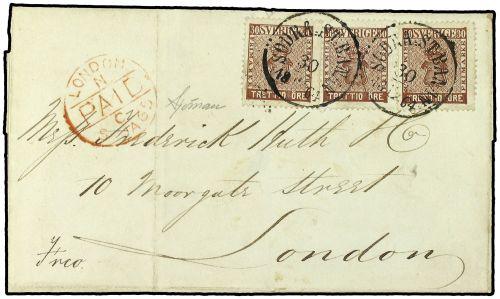 30 SVERIGE 30
TRETTIO ÖRE
30 SVERIGE 30
TRETTIO ÖRE
SVERIGE 30
TRETTIO ÖRE
SÖDRA ST.BAN
30
SÖDRA ST.BAN
30
LONDON
N
PAID
C
Messrs Frederick Huth & Co
10 Moorgate Street
London
Frco